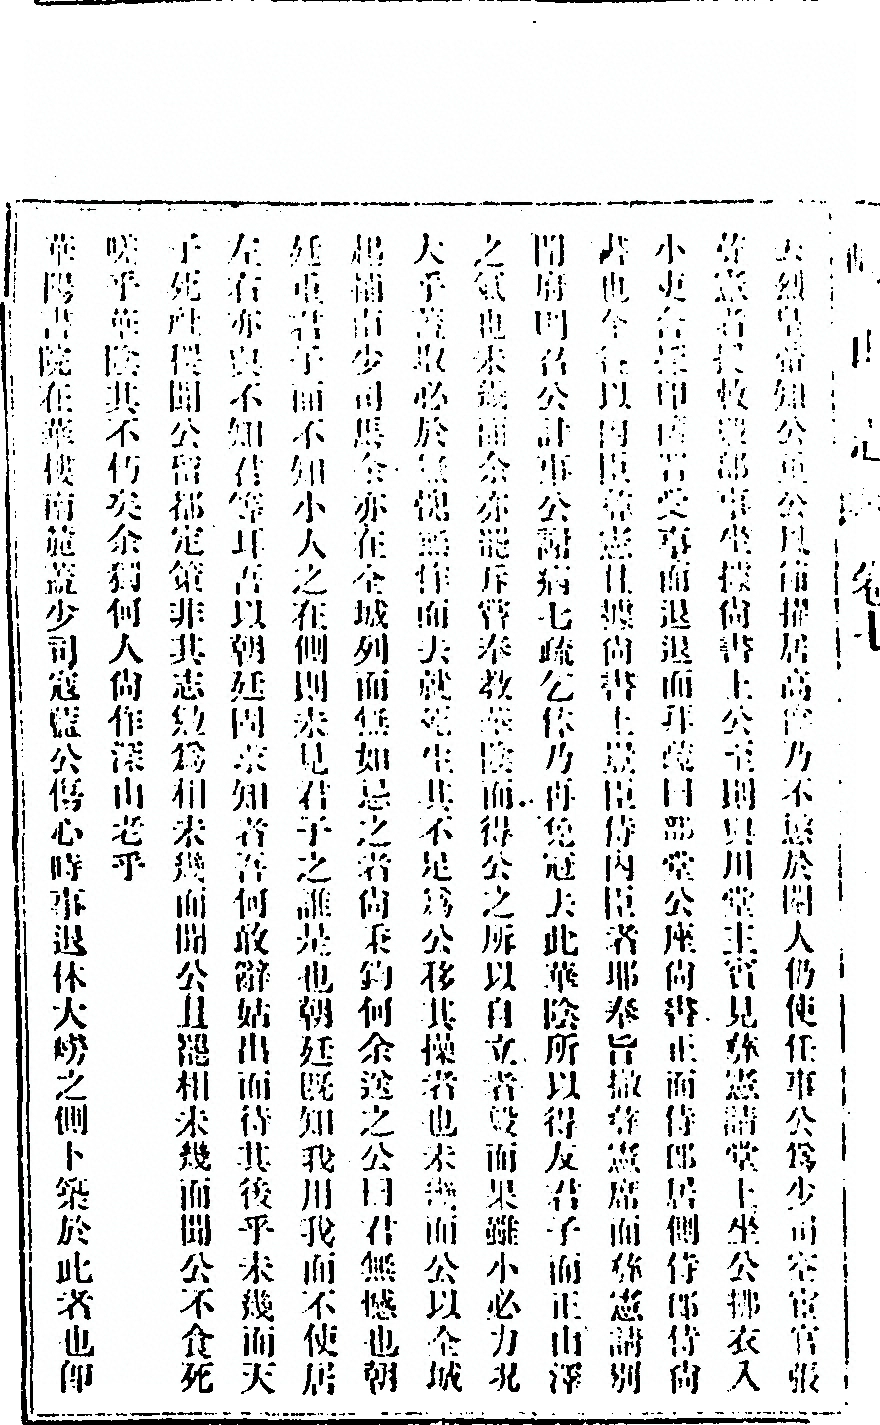 去烈皇帝知公重公風節擢居高位乃不惑於閹人仍使任事公爲少司空宦官張
彝憲者提敕過部事坐據尚書上公至則與川堂主賓見彝憲請堂上坐公挪衣入
小吏合捧印函者受事而退退而拜疏曰部堂公座尚書正面侍郎居側侍郎侍尚
書也今復以內臣彝憲且據尚書上豈臣侍內臣者耶奉旨撤彝憲席而彝憲請別
開府回名公計事公謝病七疏乞休乃再免冠去此華陰所以得友君子而正山澤
之氣也未幾而余亦罷斥嘗奉教華陰而得公之所以自立者毀而果雖小必力況
大乎蓋取必於無愧無怍而去就死生其不足爲公移其操者也未幾而公以全城
起補南少司馬余亦在全城列而無如忌之者尚秉鈞何余送之公曰君無憾也朝
廷重君子而不知小人之在側則未見君子之誰是也朝廷既知我用我而不使居
左右亦與不知君等耳吾以朝廷固未知者吾何敢辭姑出而待其後乎未幾而天
子死社稷聞公留都定策非其志勉爲相未幾而聞公且罷相未幾而聞公不食死
嗟乎華陰其不朽矣余獨何人尚作深山老乎
華陽書院在華樓南麓蓋少司寇藍公傷心時事退休大嶗之側卜築於此者也卽
山志
卷七